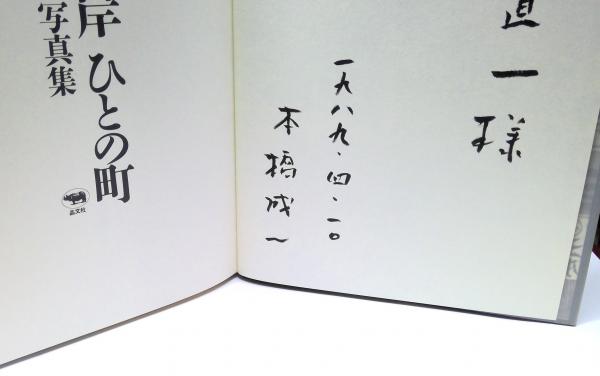 直一様
一九八九・四・一〇
本橋成一
岸 ひとの町
写真集
晶文社